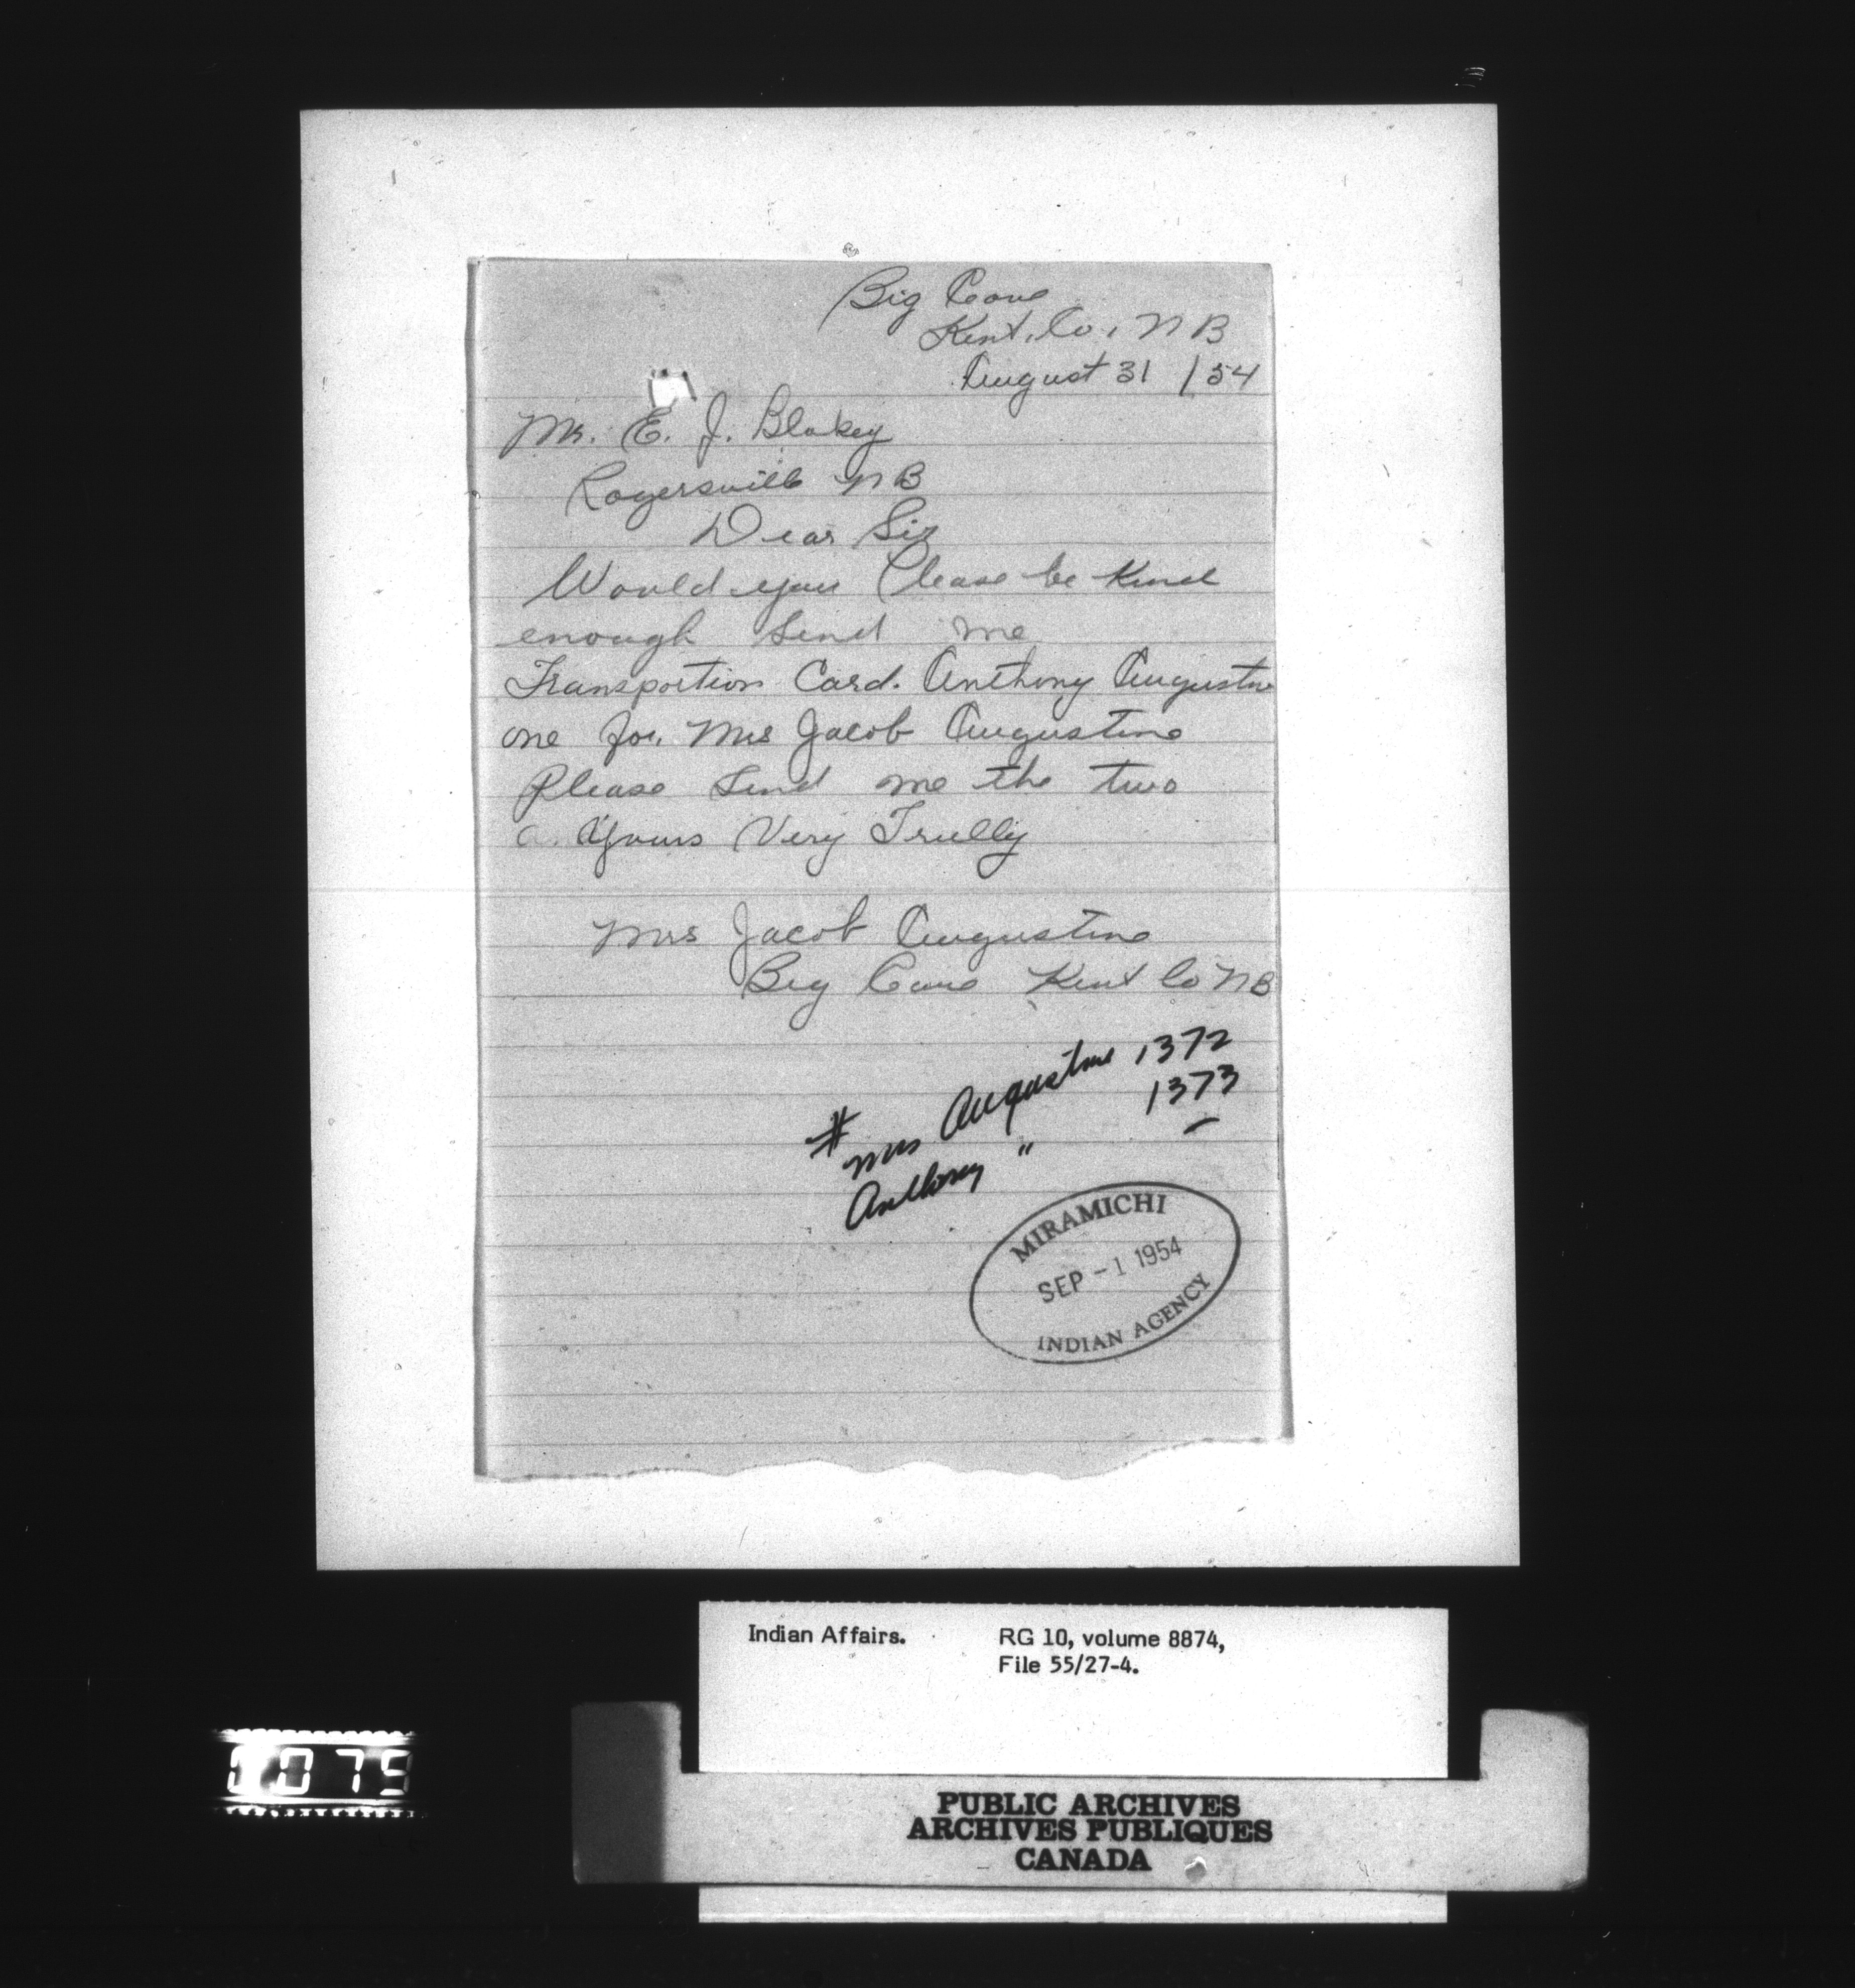 Big Cove
Kent. Co. NB
August 31 / 54
Mr. E. J. Blakey
Rogersville NB
Dear Sir
Would you Please be Kind
enough Send me
Transportion Card. Anthony Augustine
one for. Mrs Jacob Augustine
Please Send me the two
Yours Very Trully
Mrs Jacob Augustine
Big Cove Kent Co NB
# Mrs Augustine 1372
Anthony " 1373
MIRAMICHI
SEP - 1 1954
INDIAN AGENCY
Indian Affairs. RG 10, volume 8874,
File 55/27-4.
0075
PUBLIC ARCHIVES
ARCHIVES PUBLIQUES
CANADA